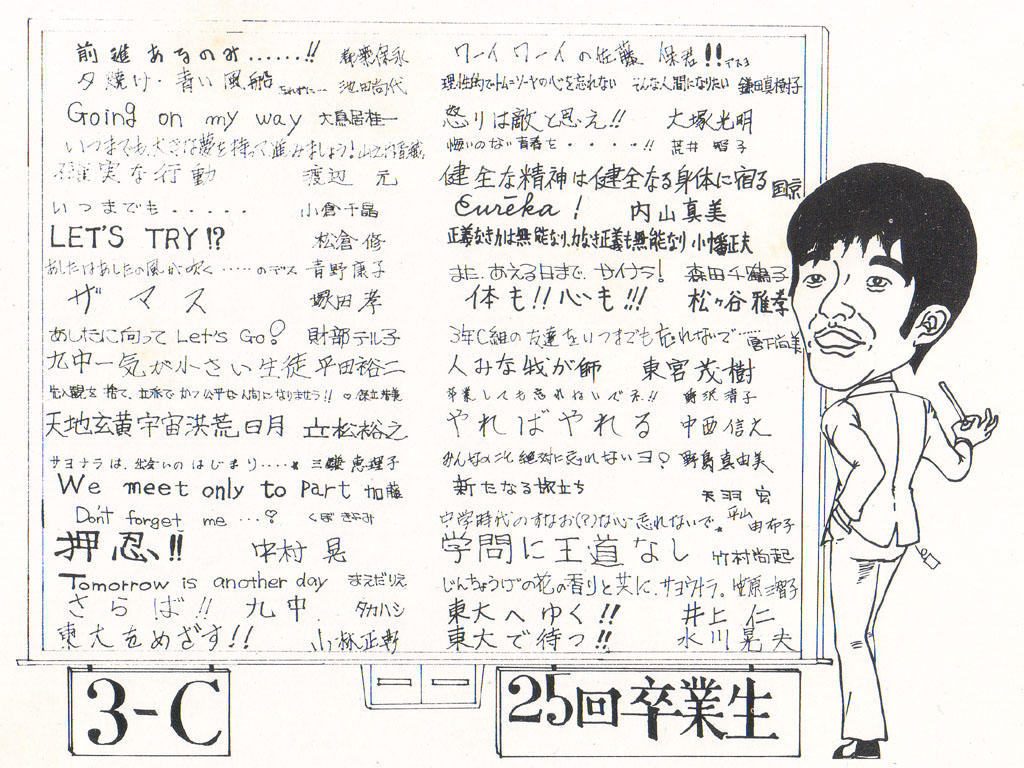 前進あるのみ……!!
夕焼け・青い風船 池田尚代
Going on my way 大鳥居桂一
いつまでも、大きな夢を持って進みましょう!
確実な行動 渡辺 元
いつまでも..... 小倉千晶
LET'S TRY!? 松倉 修
あしたはあしたの風が吹く……のデス 青野康子
ザマス 塚田 孝
あしたに向って Let's Go! 財部テル子
九中一気が小さい生徒 平田裕二
先入観を捨て、立派でかつ公平な人間になりませう!!
天地玄黄宇宙洪荒日月 立松裕之
サヨナラは、出会いのはじまり....
We meet only to part 加藤
Don't forget me …?
押忍!! 中村 晃
Tomorrow is another day まえだりえ
さらば!! 九中 タカハシ
東大をめざす!! 小林正彰
ワーイワーイの佐藤 保君!!
理性的でトム=ソーヤの心を忘れない そんな人間になりたい 鎌田真樹子
怒りは敵と思え!! 大塚光明
悔いのない青春を・・・・・!! 荒井 昭子
健全な精神は健全なる身体に宿る 国京
Eurēka! 内山真美
正義なき力は無能なり、力なき正義も無能なり 小幡正夫
また、あえる日まで、サイナラ! 森田千鶴子
体も!!心も!!! 松ヶ谷雅孝
3年C組の友達をいつまでも忘れないで…… 宮下尚美
人みな我が師 東宮茂樹
卒業しても忘れないでネ!!
やればやれる 中西信之
みんなのこと絶対に忘れないヨ? 野島真由美
新たなる旅立ち 天羽 宏
中学時代のすなお(?)な心忘れないで。 平山由布子
学問に王道なし 竹村尚起
じんちょうげの花の香りと共に、サヨウナラ。
東大へゆく!! 井上 仁
東大で待つ!! 水川晃夫
3-C
25回卒業生